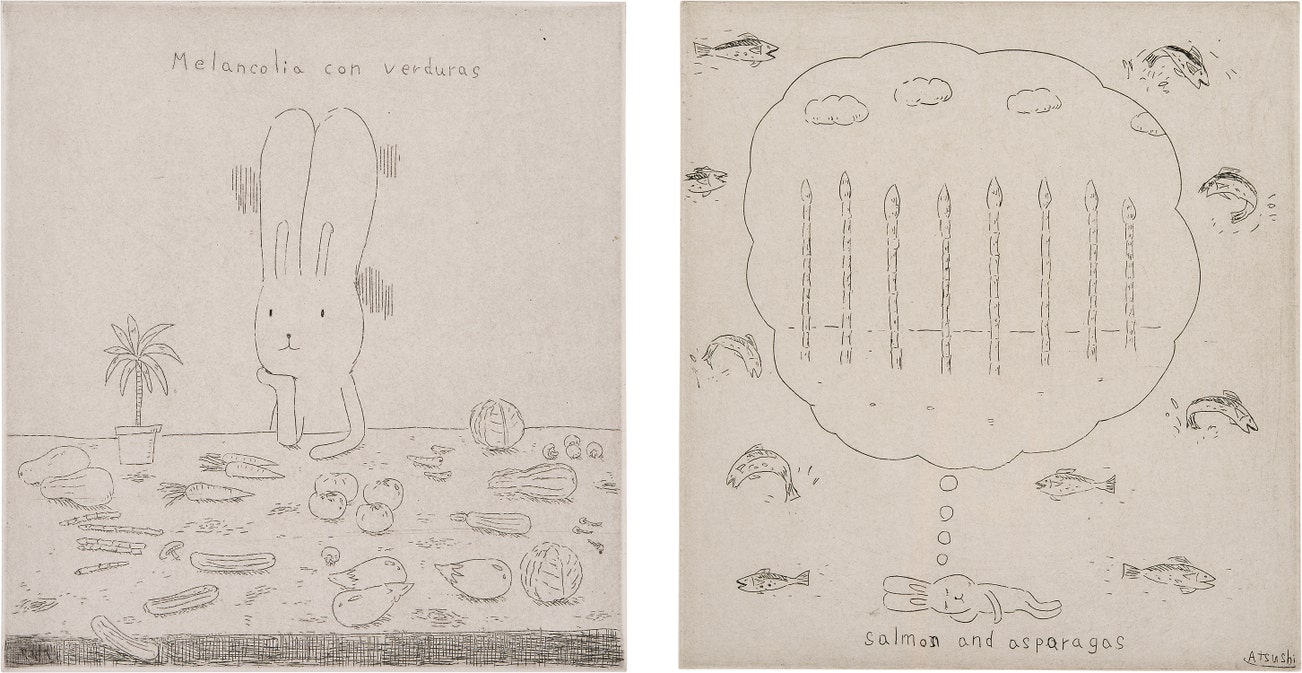 Melancolia con verduras
salmon and asparagas
Atsushi